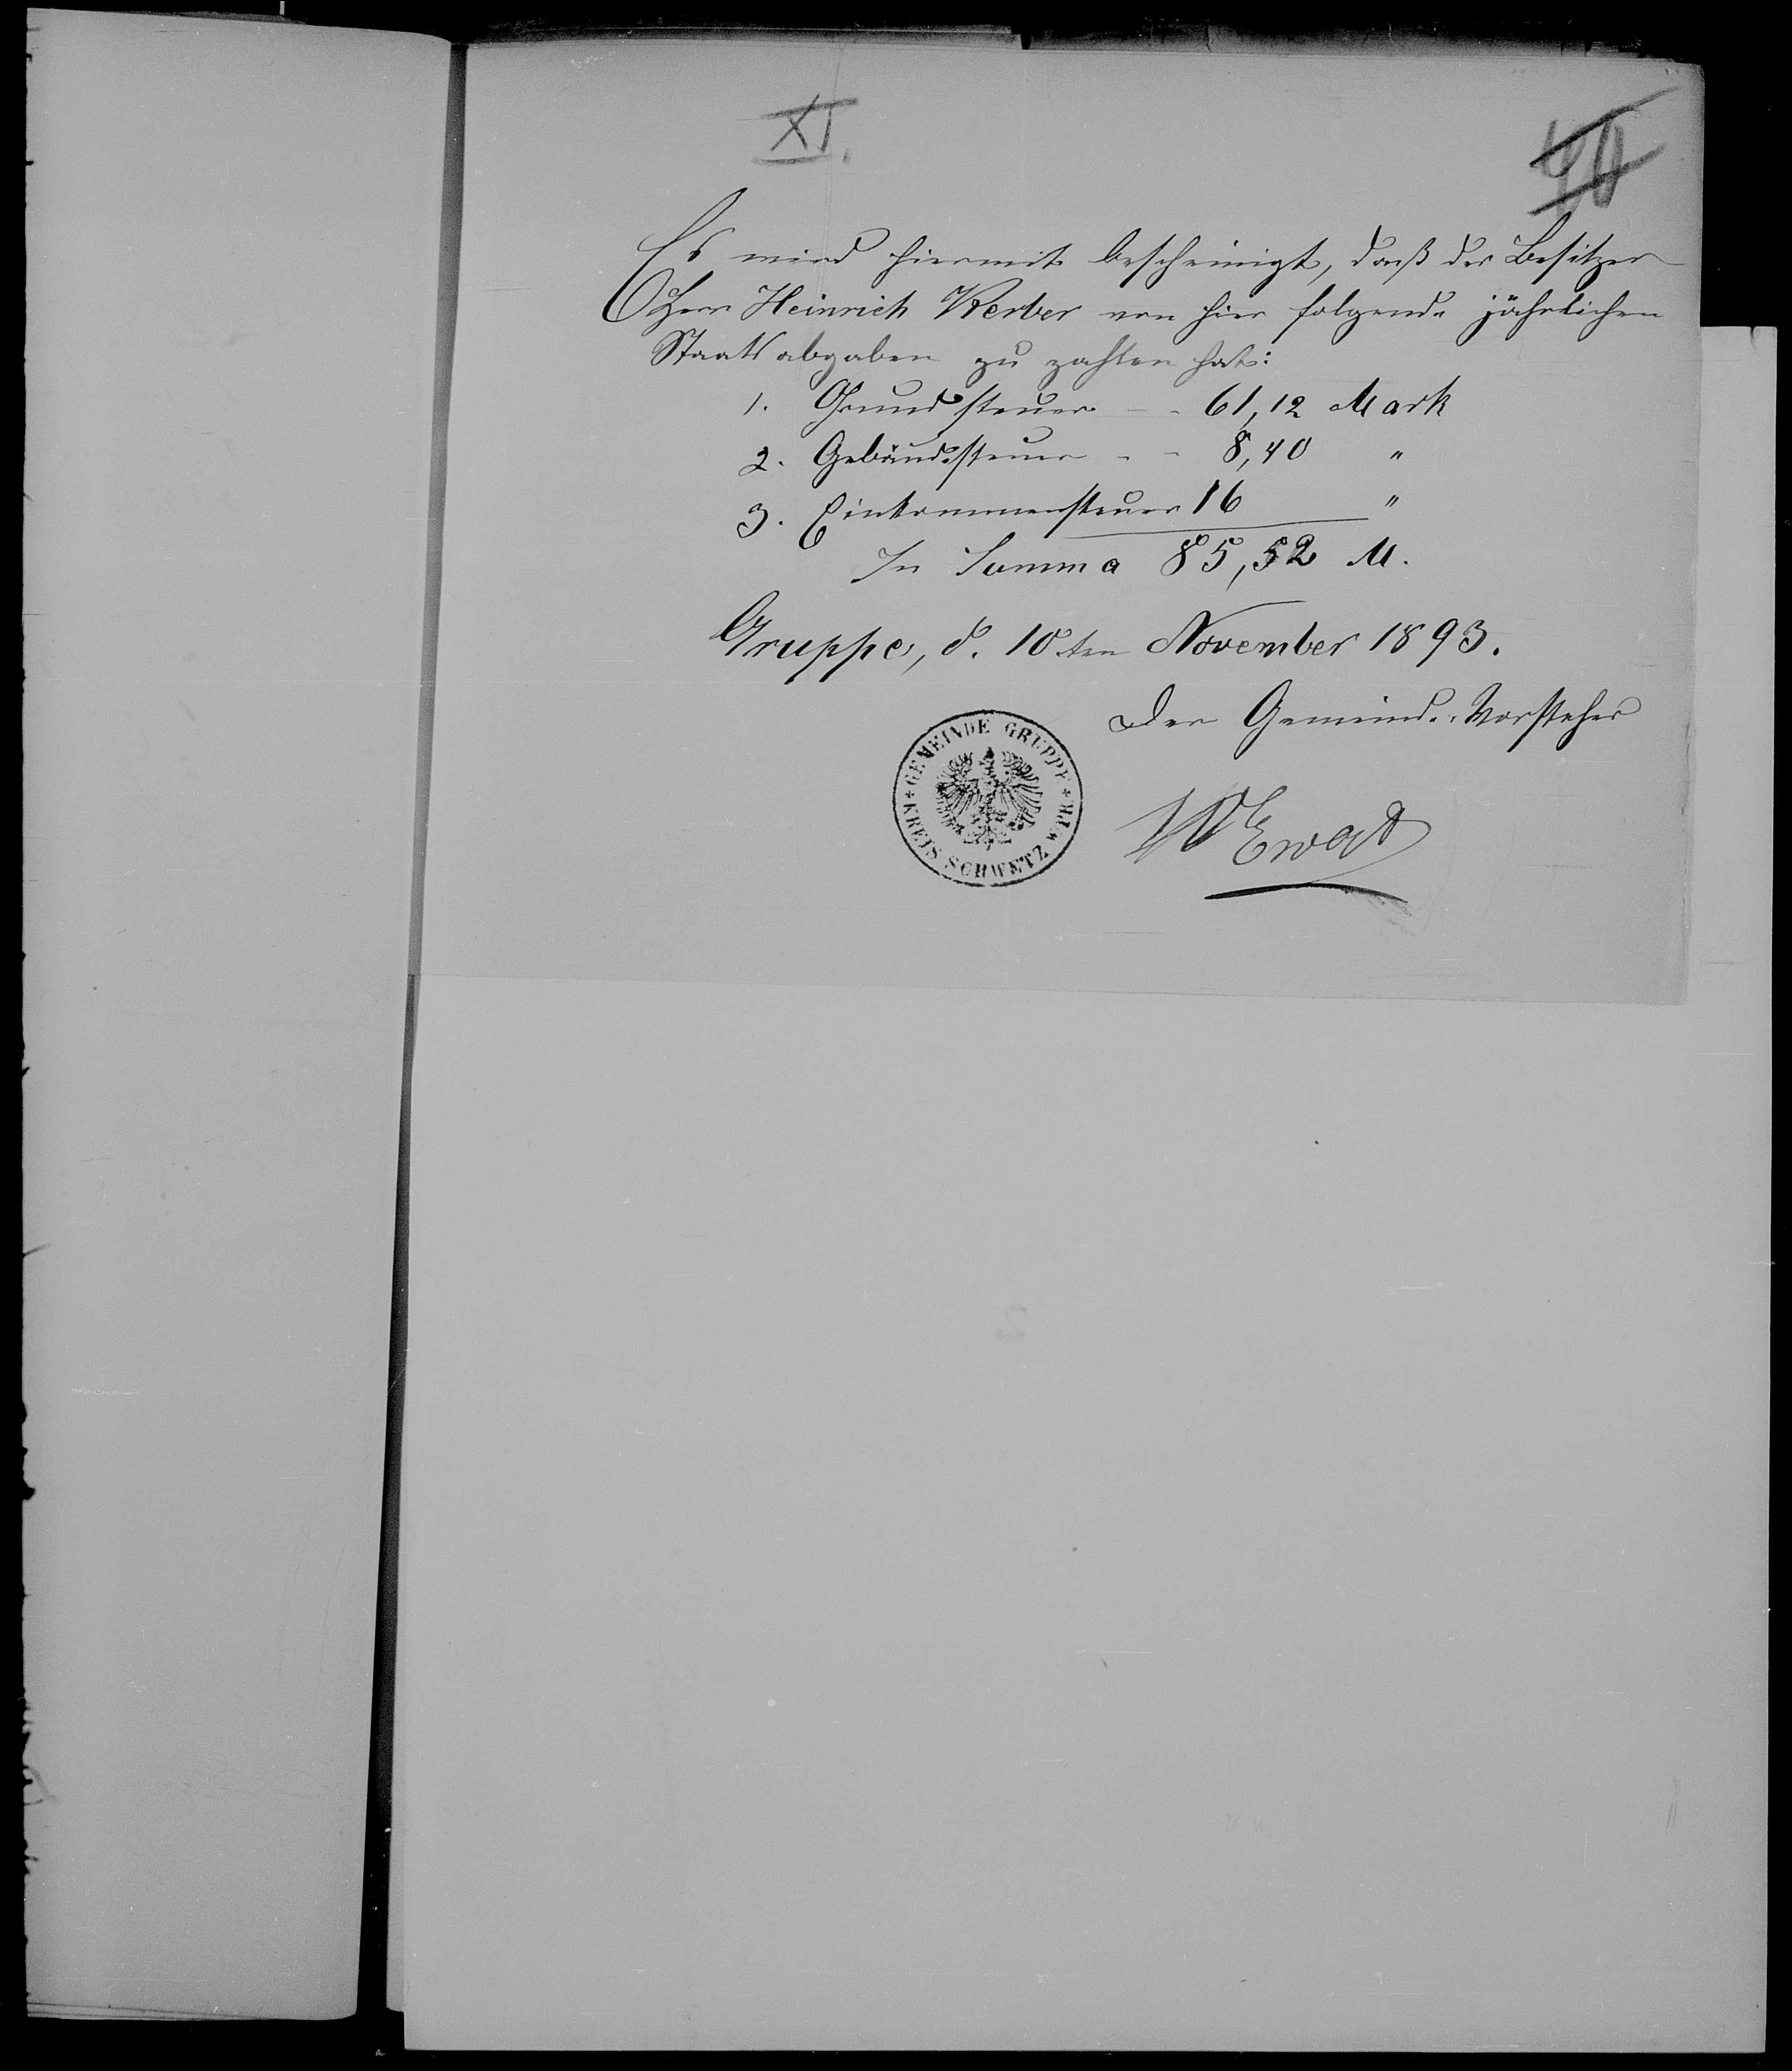 XI.
40
Es wird hiermit bescheinigt, daß der Besitzer
Herr Heinrich Werber von hier folgende jährlichen
Staatsabgaben zu zahlen hat:
1. Grundsteuer - - 61,12 Mark
2. Gebäudesteuer - - 8,40 "
3. Einkommensteuer 16 "
In Summa 85,52 M.
Gruppe, d. 10ten November 1893.
Der Gemeinde-Vorsteher
GEMEINDE GRUPPE
KREIS SCHWETZ W/PR
Ewert